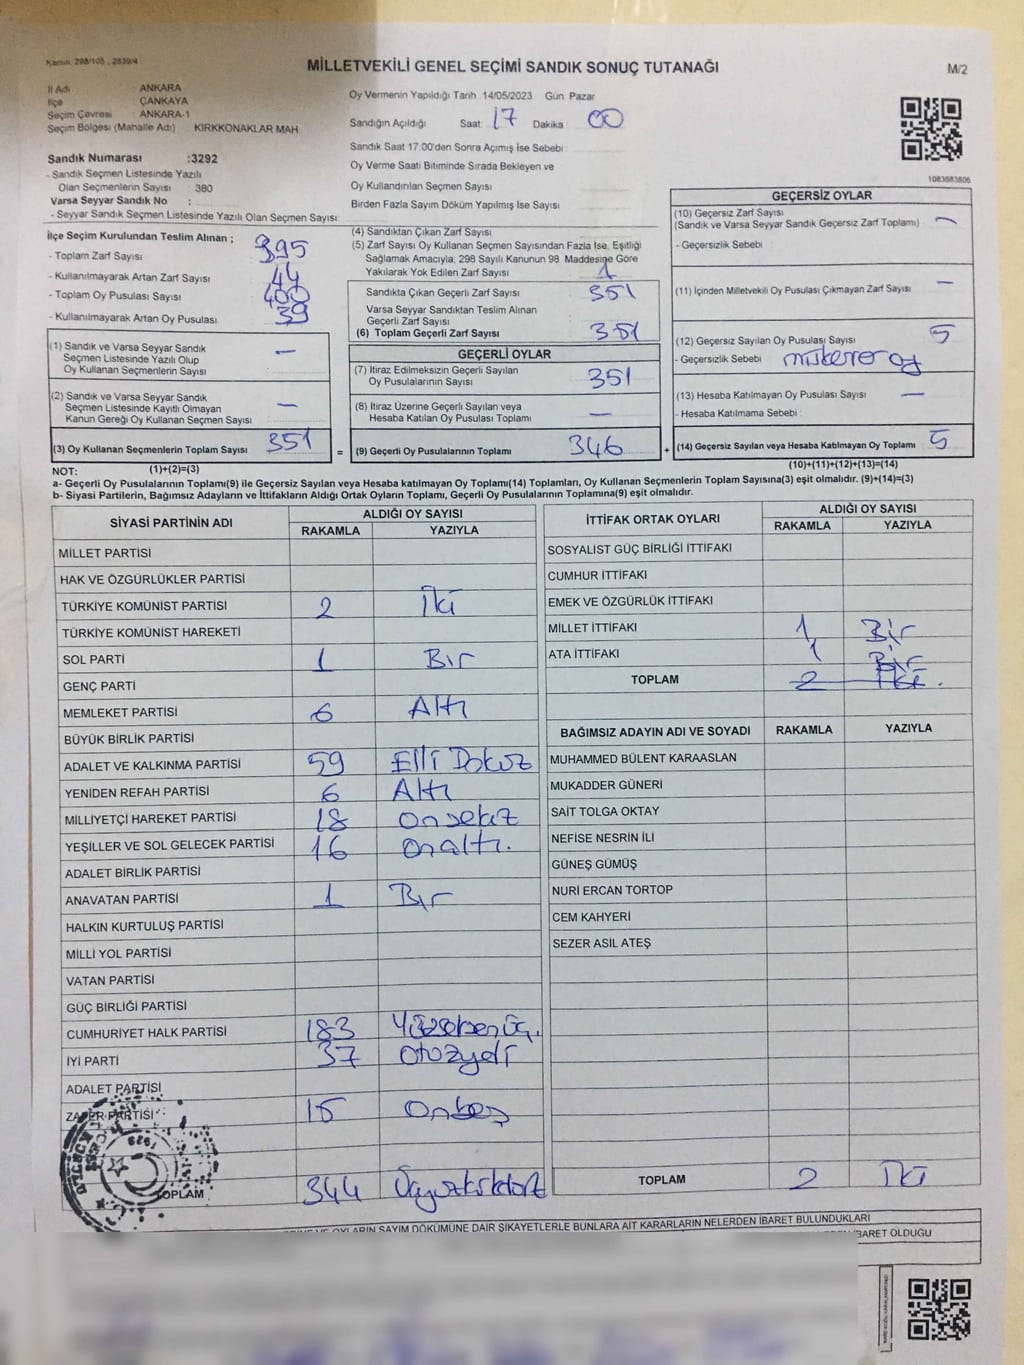 Kanun: 298/105 , 2839/4
MİLLETVEKİLİ GENEL SEÇİMİ SANDIK SONUÇ TUTANAĞI
M/2
İl Adı ANKARA
İlçe ÇANKAYA
Seçim Çevresi ANKARA-1
Seçim Bölgesi (Mahalle Adı) KIRKKONAKLAR MAH
Sandık Numarası :3292
- Sandık Seçmen Listesinde Yazılı
Olan Seçmenlerin Sayısı : 380
Varsa Seyyar Sandık No :
- Seyyar Sandık Seçmen Listesinde Yazılı Olan Seçmen Sayısı:
Oy Vermenin Yapıldığı Tarih 14/05/2023 Gün Pazar
Sandığın Açıldığı Saat 17 Dakika 00
Sandık Saat 17.00'den Sonra Açımış İse Sebebi :
Oy Verme Saati Bitiminde Sırada Bekleyen ve
Oy Kullandırılan Seçmen Sayısı :
Birden Fazla Sayım Döküm Yapılmış İse Sayısı :
1083683806
İlçe Seçim Kurulundan Teslim Alınan ;
- Toplam Zarf Sayısı : 395
- Kullanılmayarak Artan Zarf Sayısı : 44
- Toplam Oy Pusulası Sayısı : 400
- Kullanılmayarak Artan Oy Pusulası : 39
(1) Sandık ve Varsa Seyyar Sandık
Seçmen Listesinde Yazılı Olup
Oy Kullanan Seçmenlerin Sayısı : —
(2) Sandık ve Varsa Seyyar Sandık
Seçmen Listesinde Kayıtlı Olmayan
Kanun Gereği Oy Kullanan Seçmen Sayısı : —
(3) Oy Kullanan Seçmenlerin Toplam Sayısı : 351 =
(4) Sandıktan Çıkan Zarf Sayısı :
(5) Zarf Sayısı Oy Kullanan Seçmen Sayısından Fazla İse, Eşitliği
Sağlamak Amacıyla, 298 Sayılı Kanunun 98 Maddesine Göre
Yakılarak Yok Edilen Zarf Sayısı : 1
Sandıkta Çıkan Geçerli Zarf Sayısı : 351
Varsa Seyyar Sandıktan Teslim Alınan
Geçerli Zarf Sayısı :
(6) Toplam Geçerli Zarf Sayısı : 351
GEÇERLİ OYLAR
(7) İtiraz Edilmeksizin Geçerli Sayılan
Oy Pusulalarının Sayısı : 351
(8) İtiraz Üzerine Geçerli Sayılan veya
Hesaba Katılan Oy Pusulası Toplamı : —
(9) Geçerli Oy Pusulalarının Toplamı : 346 +
GEÇERSİZ OYLAR
(10) Geçersiz Zarf Sayısı
(Sandık ve Varsa Seyyar Sandık Geçersiz Zarf Toplamı) : —
- Geçersizlik Sebebi :
(11) İçinden Milletvekili Oy Pusulası Çıkmayan Zarf Sayısı : —
(12) Geçersiz Sayılan Oy Pusulası Sayısı : 5
- Geçersizlik Sebebi : mükerrer oy
(13) Hesaba Katılmayan Oy Pusulası Sayısı : —
- Hesaba Katılmama Sebebi :
(14) Geçersiz Sayılan veya Hesaba Katılmayan Oy Toplamı : 5
NOT: (1)+(2)=(3) (10)+(11)+(12)+(13)=(14)
a- Geçerli Oy Pusulalarının Toplamı(9) ile Geçersiz Sayılan veya Hesaba katılmayan Oy Toplamı(14) Toplamları, Oy Kullanan Seçmenlerin Toplam Sayısına(3) eşit olmalıdır. (9)+(14)=(3)
b- Siyasi Partilerin, Bağımsız Adayların ve İttifakların Aldığı Ortak Oyların Toplamı, Geçerli Oy Pusulalarının Toplamına(9) eşit olmalıdır.
SİYASİ PARTİNİN ADI ALDIĞI OY SAYISI
RAKAMLA YAZIYLA
MİLLET PARTİSİ
HAK VE ÖZGÜRLÜKLER PARTİSİ
TÜRKİYE KOMÜNİST PARTİSİ 2 İki
TÜRKİYE KOMÜNİST HAREKETİ
SOL PARTİ 1 Bir
GENÇ PARTİ
MEMLEKET PARTİSİ 6 Altı
BÜYÜK BİRLİK PARTİSİ
ADALET VE KALKINMA PARTİSİ 59 Elli Dokuz
YENİDEN REFAH PARTİSİ 6 Altı
MİLLİYETÇİ HAREKET PARTİSİ 18 onsekiz
YEŞİLLER VE SOL GELECEK PARTİSİ 16 onaltı.
ADALET BİRLİK PARTİSİ
ANAVATAN PARTİSİ 1 Bir
HALKIN KURTULUŞ PARTİSİ
MİLLİ YOL PARTİSİ
VATAN PARTİSİ
GÜÇ BİRLİĞİ PARTİSİ
CUMHURİYET HALK PARTİSİ 183 Yüzseksenüç.
İYİ PARTİ 37 otuzyedi
ADALET PARTİSİ
ZAFER PARTİSİ 15 onbeş
TOPLAM 344 Üçyüzkırkdört
İTTİFAK ORTAK OYLARI ALDIĞI OY SAYISI
RAKAMLA YAZIYLA
SOSYALIST GÜÇ BİRLİĞİ İTTİFAKI
CUMHUR İTTİFAKI
EMEK VE ÖZGÜRLÜK İTTİFAKI
MİLLET İTTİFAKI 1 Bir
ATA İTTİFAKI 1 Bir
TOPLAM 2 İki.
BAĞIMSIZ ADAYIN ADI VE SOYADI RAKAMLA YAZIYLA
MUHAMMED BÜLENT KARAASLAN
MUKADDER GÜNERİ
SAİT TOLGA OKTAY
NEFİSE NESRİN İLİ
GÜNEŞ GÜMÜŞ
NURİ ERCAN TORTOP
CEM KAHYERİ
SEZER ASİL ATEŞ
TOPLAM 2 İki
VE OYLARIN SAYIM DÖKÜMÜNE DAİR ŞİKAYETLERLE BUNLARA AİT KARARLARIN NELERDEN İBARET BULUNDUKLARI
İBARET OLDUĞU